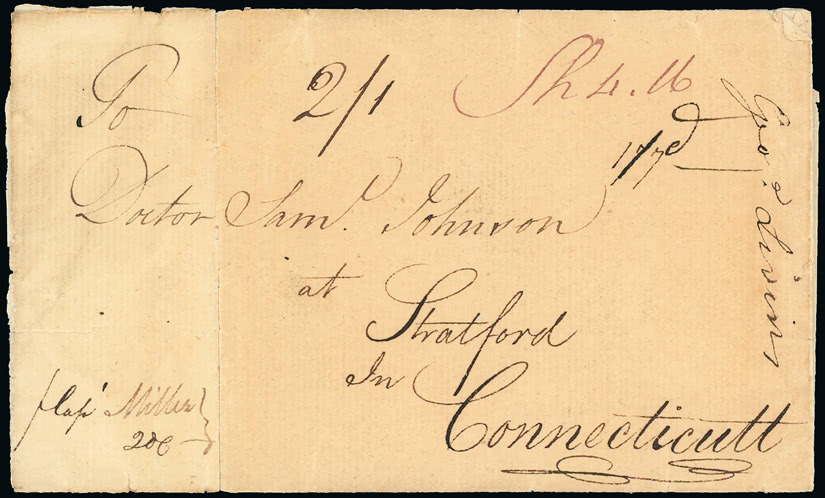 To
2/1
Sh 4.16
Doctor Sam.l Johnson
at
Stratford
In
Connecticutt
Cap.t Miller